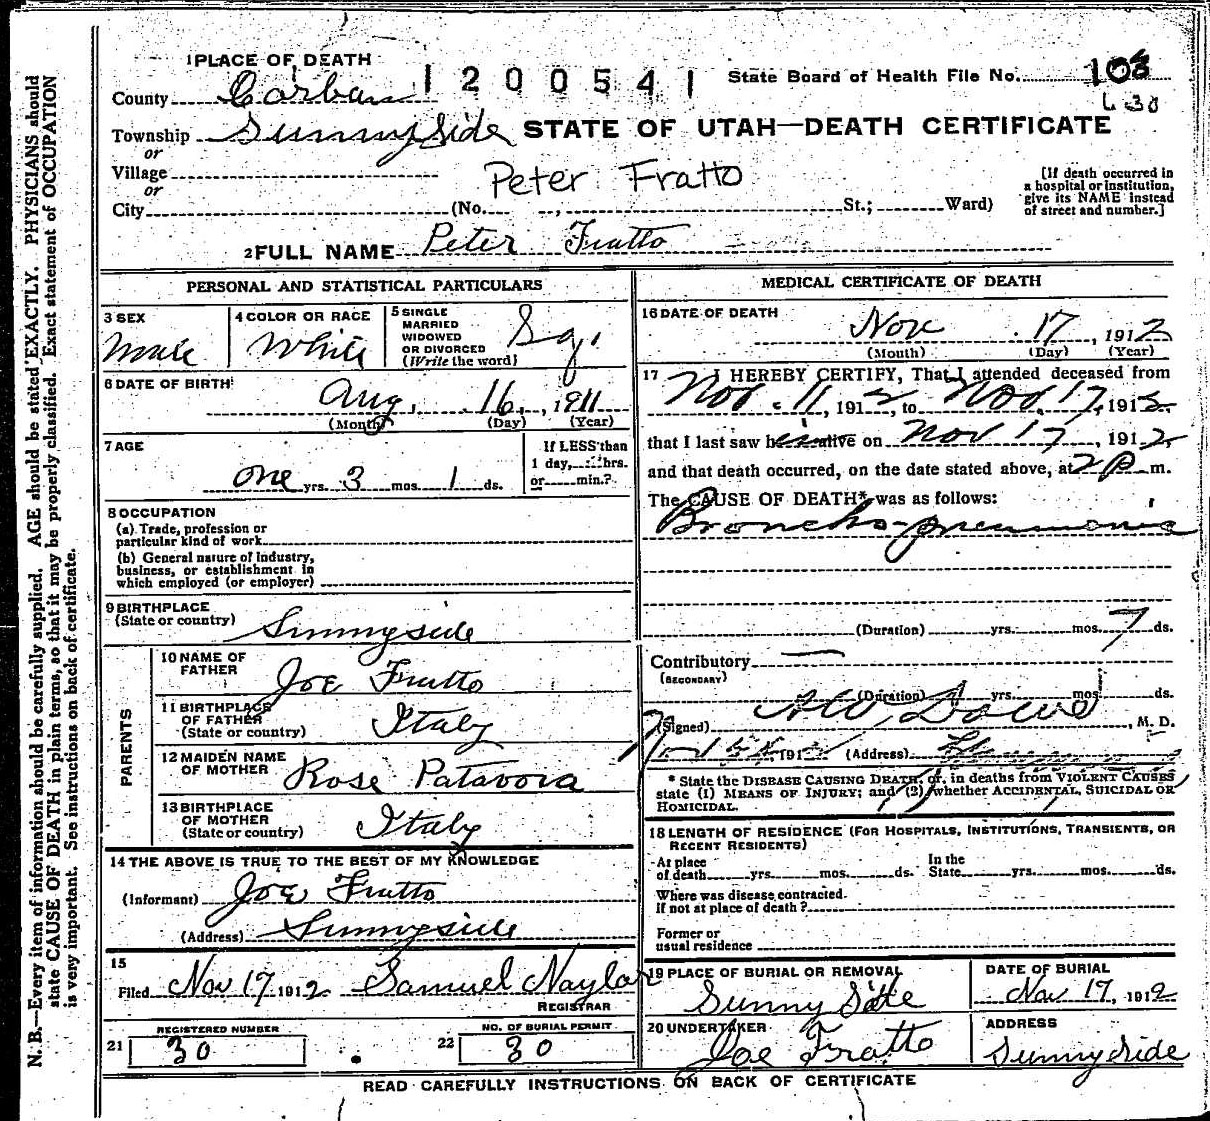 N. B.—Every item of information should be carefully supplied. AGE should be stated EXACTLY. PHYSICIANS should
state CAUSE OF DEATH in plain terms, so that it may be properly classified. Exact statement of OCCUPATION
is very important. See instructions on back of certificate.
1 PLACE OF DEATH
1200541
State Board of Health File No. 103
County Carbon
630
Township Sunnyside
STATE OF UTAH—DEATH CERTIFICATE
or
Village
Peter Fratto
or
[If death occurred in
a hospital or institution,
give its NAME instead
of street and number.]
City (No. , St.; Ward)
2 FULL NAME Peter Fratto
PERSONAL AND STATISTICAL PARTICULARS
3 SEX
Male
4 COLOR OR RACE
White
5 SINGLE
MARRIED
WIDOWED
OR DIVORCED
(Write the word)
Sg.
6 DATE OF BIRTH
Aug. 16, 1911
(Month) (Day) (Year)
7 AGE
one yrs. 3 mos. 1 ds.
If LESS than
1 day, hrs.
or min.?
8 OCCUPATION
(a) Trade, profession or
particular kind of work
(b) General nature of industry,
business, or establishment in
which employed (or employer)
9 BIRTHPLACE
(State or country) Sunnyside
PARENTS
10 NAME OF
FATHER
Joe Fratto
11 BIRTHPLACE
OF FATHER
(State or country) Italy
12 MAIDEN NAME
OF MOTHER Rose Patavora
13 BIRTHPLACE
OF MOTHER
(State or country) Italy
14 THE ABOVE IS TRUE TO THE BEST OF MY KNOWLEDGE
(Informant) Joe Fratto
(Address) Sunnyside
15
Filed Nov 17 1912 Samuel Naylor
REGISTRAR
21 REGISTERED NUMBER
30
22 NO. OF BURIAL PERMIT
30
MEDICAL CERTIFICATE OF DEATH
16 DATE OF DEATH
Nov 17, 1912
(Month) (Day) (Year)
17 I HEREBY CERTIFY, That I attended deceased from
Nov. 11, 1912, to Nov. 17, 1912
that I last saw him alive on Nov 17, 1912
and that death occurred, on the date stated above, at 2 P m.
The CAUSE OF DEATH* was as follows:
Broncho-pneumonia
(Duration) yrs. mos. 7 ds.
Contributory —
(SECONDARY)
(Duration) yrs. mos. ds.
(Signed) A W Dowd, M. D.
191 (Address)
* State the DISEASE CAUSING DEATH, or, in deaths from VIOLENT CAUSES
state (1) MEANS OF INJURY; and (2) whether ACCIDENTAL, SUICIDAL OR
HOMICIDAL.
18 LENGTH OF RESIDENCE (FOR HOSPITALS, INSTITUTIONS, TRANSIENTS, OR
RECENT RESIDENTS)
At place
of death yrs. mos. ds.
In the
State yrs. mos. ds.
Where was disease contracted
If not at place of death?
Former or
usual residence
19 PLACE OF BURIAL OR REMOVAL
Sunny Side
DATE OF BURIAL
Nov 17, 1912
20 UNDERTAKER
Joe Fratto
ADDRESS
Sunnyside
READ CAREFULLY INSTRUCTIONS ON BACK OF CERTIFICATE